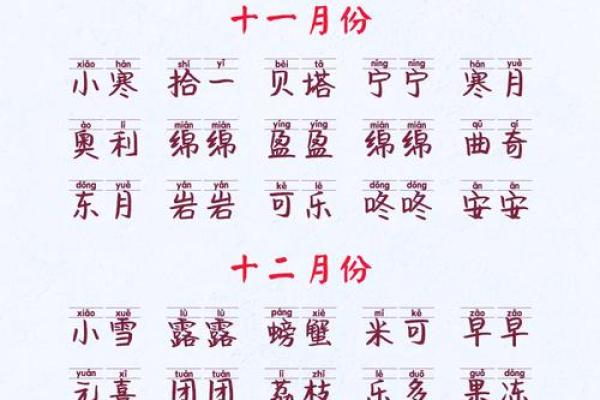 十一月份
xiǎo hán shí yī bèi tǎ níng níng hán yuè
小寒 拾一 贝塔 宁宁 寒月
ào lì mián mián yíng yíng mián mián qǔ qí
奥利 绵绵 盈盈 绵绵 曲奇
dōng yuè yán yán kě lè dōng dōng ān ān
东月 岩岩 可乐 咚咚 安安
十二月份
xiǎo xuě lù lù páng xiè mǐ kě zǎo zǎo
小雪 露露 螃蟹 米可 早早
yuán xǐ lì zhī lè duō guǒ dòng
元喜 团团 荔枝 乐多 果冻